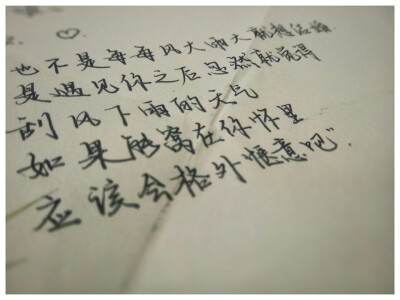 2. ♡
也不是每每风大雨大就想结婚
是遇见你之后忽然就觉得
刮风下雨的天气
如果能窝在你怀里
应该会格外惬意吧”.